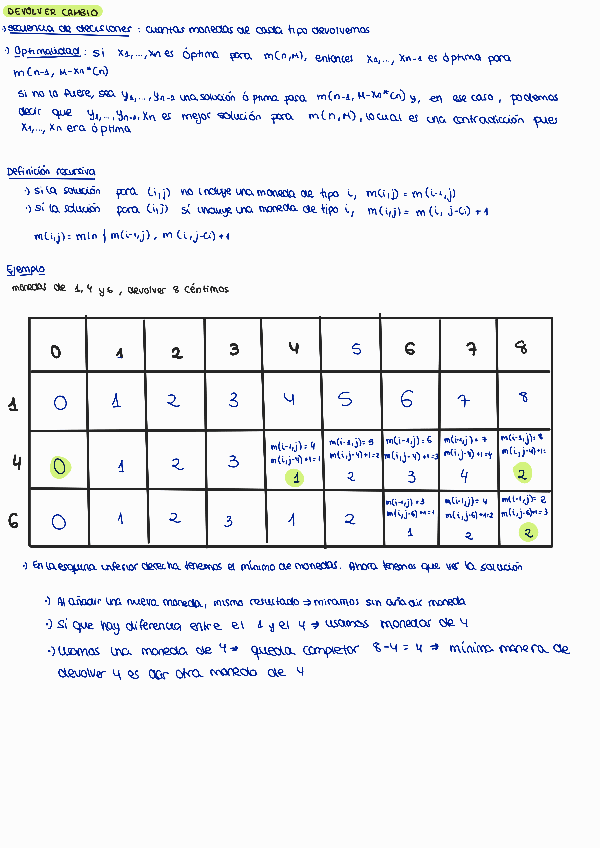 DEVOLVER CAMBIO
·) secuencia de decisiones : cuantas monedas de cada tipo devolvemos
·) Optimalidad : Si x1,...,xn es óptima para m(n,M), entonces x1,..., xn-1 es óptima para
m(n-1, M-xn*cn)
Si no lo fuere, sea y1,...,yn-1 una solución óptima para m(n-1, M-xn*cn) y, en ese caso, podemos
decir que y1,...,yn-1, xn es mejor solución para m(n,M), lo cual es una contradicción pues
x1,..., xn era óptima
Definición recursiva
·) Si la solución para (i,j) no incluye una moneda de tipo i, m(i,j) = m(i-1,j)
·) Si la solución para (i,j) sí incluye una moneda de tipo i, m(i,j) = m(i, j-ci) +1
m(i,j) = min { m(i-1,j), m(i,j-ci)+1
Ejemplo
monedas de 1,4 y 6, devolver 8 céntimos
0 1 2 3 4 5 6 7 8
1 0 1 2 3 4 5 6 7 8
m(i-1,j) = 4 m(i-1,j) = 5 m(i-1,j) = 6 m(i-1,j) = 7 m(i-1,j) = 8
m(i,j-4)+1=1 m(i,j-4)+1=2 m(i,j-4)+1=3 m(i,j-4)+1=4 m(i,j-4)+1=
4 0 1 2 3 1 2 3 4 2
m(i-1,j) = 3 m(i-1,j) = 4 m(i-1,j) = 2
m(i,j-6)+1=1 m(i,j-6)+1=2 m(i,j-6)+1=3
6 0 1 2 3 1 2 1 2 2
·) En la esquina inferior derecha tenemos el mínimo de monedas. Ahora tenemos que ver la solución
·) Al añadir una nueva moneda, mismo resultado ⇒ miramos sin añadir moneda
·) Sí que hay diferencia entre el 1 y el 4 ⇒ usamos monedas de 4
·) Usamos una moneda de 4 ⇒ queda completar 8-4 = 4 ⇒ mínima manera de
devolver 4 es dar otra moneda de 4